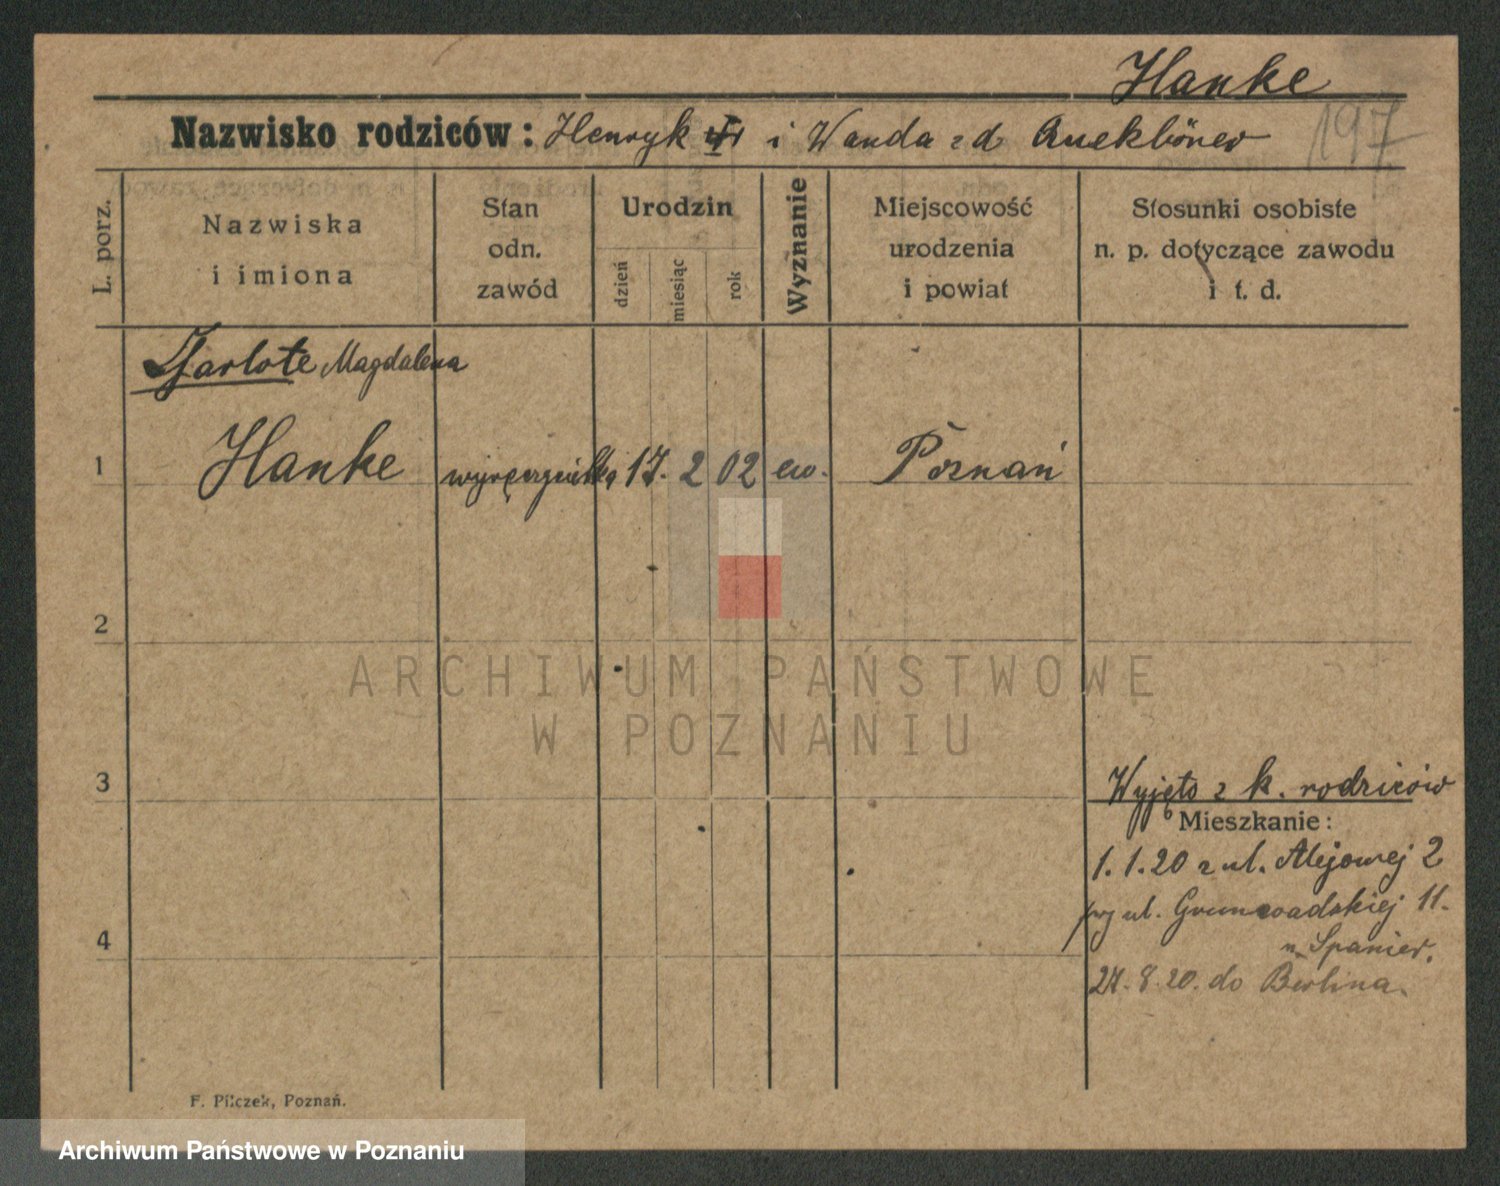 Hanke
Nazwisko rodziców: Henryk i Wanda zd
197
L. porz.
Nazwiska
i imiona
Stan
odn.
zawód
Urodzin
dzień
miesiąc
rok
Wyznanie
Miejscowość
urodzenia
i powiat
Stosunki osobiste
n. p. dotyczące zawodu
i t. d.
Szarlote Magdalena
1 Hanke wyręczycielka 17. 2 02 ew. Poznań
2
ARCHIWUM PAŃSTWOWE
W POZNANIU
3
Wyjęto z k. rodziców
Mieszkanie:
1.1.20 z ul. Alejowej 2
4
ul. Grunwadskiej 11.
u Spanier.
8.20. do Berlina.
F. Pilczek, Poznań.
Archiwum Państwowe w Poznaniu